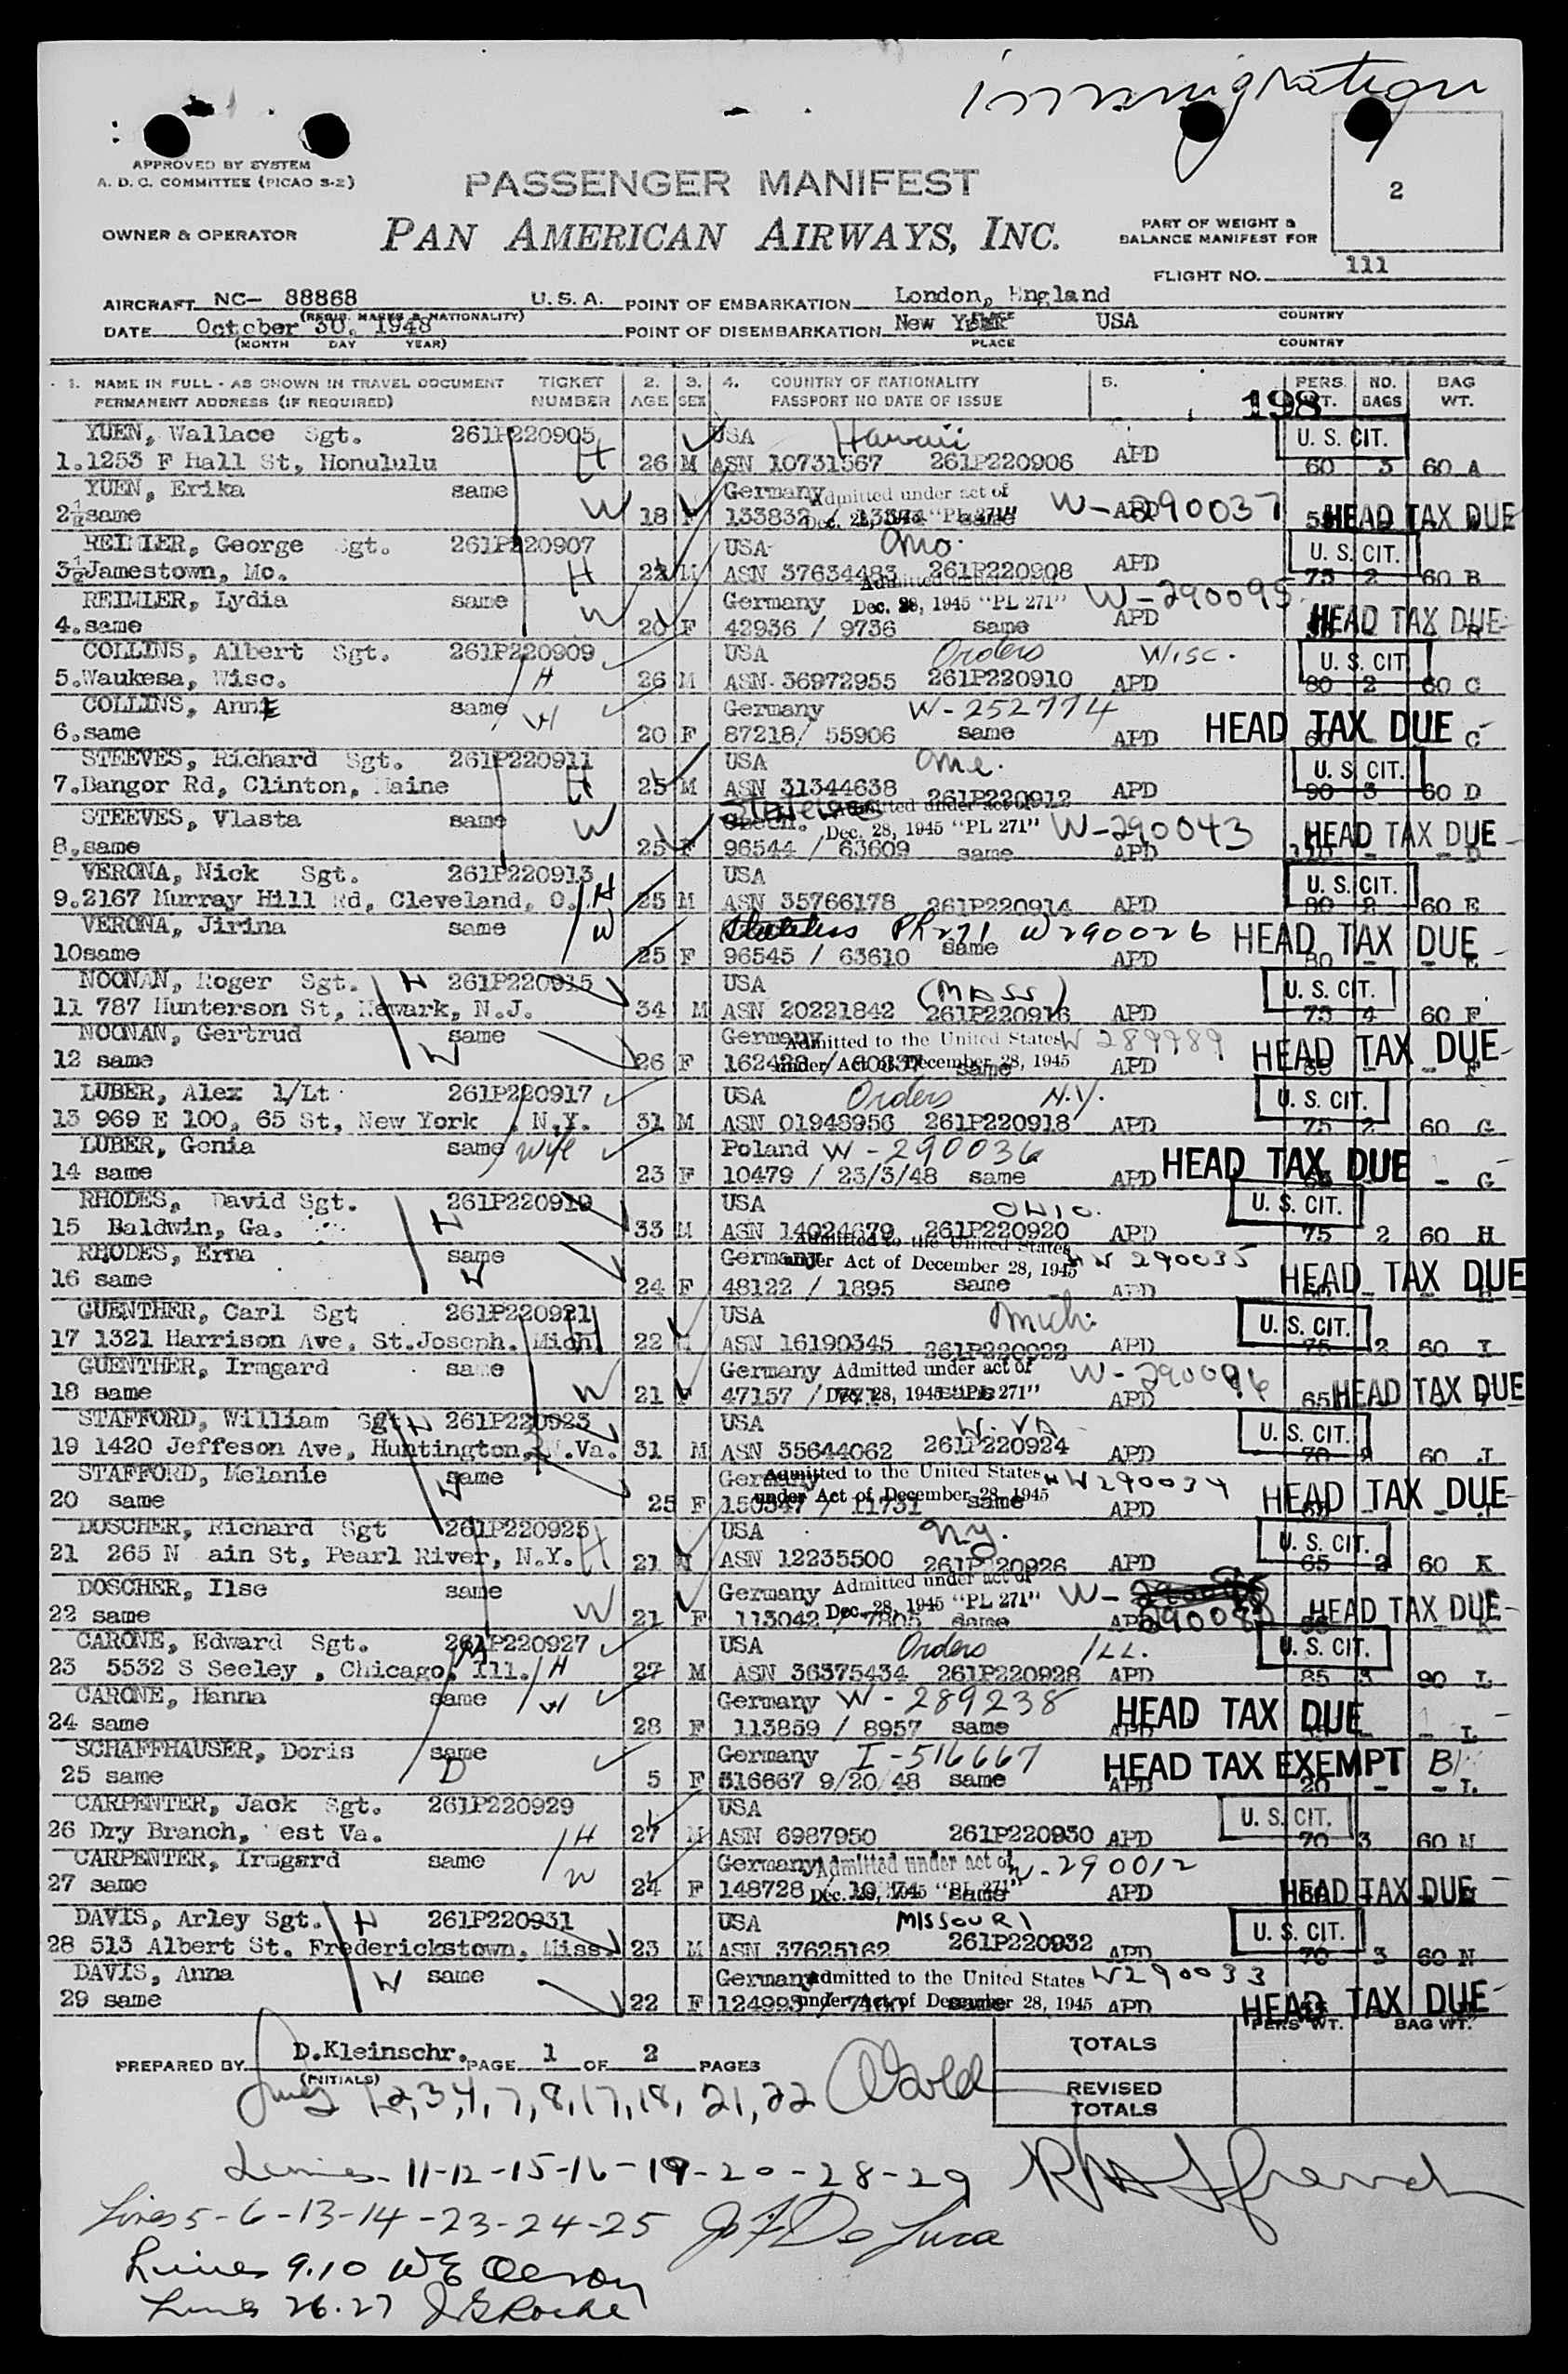 immigration
APPROVED BY SYSTEM
A. D. C. COMMITTEE (PICAO S-2)
PASSENGER MANIFEST
2
OWNER & OPERATOR
PAN AMERICAN AIRWAYS, INC.
PART OF WEIGHT &
BALANCE MANIFEST FOR
FLIGHT NO. 111
AIRCRAFT NC- 88868 U. S. A. POINT OF EMBARKATION London, England
(REGIS. MARKS & NATIONALITY) COUNTRY
DATE October 30, 1948 POINT OF DISEMBARKATION New York USA
(MONTH DAY YEAR) PLACE COUNTRY
1. NAME IN FULL - AS SHOWN IN TRAVEL DOCUMENT TICKET 2. 3. 4. COUNTRY OF NATIONALITY 5. PERS. NO. BAG
PERMANENT ADDRESS (IF REQUIRED) NUMBER AGE SEX PASSPORT NO DATE OF ISSUE 198 WT. BAGS WT.
YUEN, Wallace Sgt. 261P220905 USA Hawaii U. S. CIT.
1.1253 F Hall St, Honolulu H 26 M ASN 10731567 261P220906 APD 60 3 60 A
YUEN, Erika same Germany Admitted under act of W-290037
2½same W 18 F 133832 / Dec. 28, 1945 "PL 271" same APD HEAD TAX DUE
REIMLER, George Sgt. 261P220907 USA Mo. U. S. CIT.
3½Jamestown, Mo. H 22 M ASN 37634483 261P220908 APD 75 2 60 B
REIMLER, Lydia same Germany Admitted Dec. 28, 1945 "PL 271" W-290095
4.same W 20 F 42936 / 9736 same APD HEAD TAX DUE
COLLINS, Albert Sgt. 261P220909 USA Orders Wisc. U. S. CIT
5.Waukesa, Wisc. H 26 M ASN 36972955 261P220910 APD 80 2 60 C
COLLINS, Anne same Germany W-252774
6.same W 20 F 87218/ 55906 same APD HEAD TAX DUE C
STEEVES, Richard Sgt. 261P220911 USA Me. U. S. CIT.
7.Bangor Rd, Clinton, Maine H 25 M ASN 31344638 261P220912 APD 90 3 60 D
STEEVES, Vlasta same Czech. Stateless Admitted under act of Dec. 28, 1945 "PL 271" W-290043
8.same W 25 F 96544 / 63609 same APD HEAD TAX DUE
VERONA, Nick Sgt. 261P220913 USA U. S. CIT.
9.2167 Murray Hill Rd, Cleveland, O. H 25 M ASN 35766178 261P220914 APD 80 2 60 E
VERONA, Jirina same Stateless PL271 W290026
10same W 25 F 96545 / 63610 same APD HEAD TAX DUE
NOONAN, Roger Sgt. H 261P220915 USA (MASS) U. S. CIT.
11 787 Hunterson St, Newark, N.J. 34 M ASN 20221842 261P220916 APD 75 4 60 F
NOONAN, Gertrud same Germany Admitted to the United States W 289989
12 same W 26 F under Act of December 28, 1945 same APD HEAD TAX DUE
LUBER, Alex 1/Lt 261P220917 USA Orders N.Y. U. S. CIT.
13 969 E 100, 65 St, New York , N.Y. 31 M ASN 01948956 261P220918 APD 75 2 60 G
LUBER, Genia same wife Poland W-290036
14 same 23 F 10479 / 23/3/48 same APD HEAD TAX DUE - G
RHODES, David Sgt. 261P220919 USA OHIO. U. S. CIT.
15 Baldwin, Ga. H 33 M ASN 14024679 261P220920 APD 75 2 60 H
RHODES, Erna same Germany Admitted to the United States under Act of December 28, 1945 W 290035
16 same W 24 F 48122 / 1895 same APD HEAD TAX DUE
GUENTHER, Carl Sgt 261P220921 USA Mich. U. S. CIT.
17 1321 Harrison Ave, St.Joseph. Mich H 22 M ASN 16190345 261P220922 APD 75 2 60 I
GUENTHER, Irmgard same Germany Admitted under act of W-290096
18 same W 21 F 47157 / Dec. 28, 1945 "PL 271" same APD 65 HEAD TAX DUE
STAFFORD, William Sgt. H 261P220923 USA W. VA U. S. CIT.
19 1420 Jeffeson Ave, Huntington, W.Va. 31 M ASN 35644062 261P220924 APD 70 2 60 J
STAFFORD, Melanie same Germany Admitted to the United States W290034
20 same W 25 F 150547 / 11731 under Act of December 28, 1945 same APD HEAD TAX DUE
DOSCHER, Richard Sgt 261P220925 USA N.Y. U. S. CIT.
21 265 N ain St, Pearl River, N.Y. H 21 M ASN 12235500 261P220926 APD 65 2 60 K
DOSCHER, Ilse same Germany Admitted under act of W-
22 same W 21 F 113042 / 7805 Dec. 28, 1945 "PL 271" same APD HEAD TAX DUE
CARONE, Edward Sgt. 261P220927 USA Orders ILL. U. S. CIT.
23 5532 S Seeley , Chicago, Ill. H 27 M ASN 36375434 261P220928 APD 85 3 90 L
CARONE, Hanna same Germany W-289238
24 same W 28 F 113859 / 8957 same APD HEAD TAX DUE - L
SCHAFFHAUSER, Doris same Germany I-516667
25 same D 5 F 516667 9/20/48 same APD HEAD TAX EXEMPT 20 - - L
CARPENTER, Jack Sgt. 261P220929 USA U. S. CIT.
26 Dry Branch, West Va. H 27 M ASN 6987950 261P220930 APD 70 3 60 M
CARPENTER, Irmgard same Germany Admitted under act of W-290012
27 same W 24 F 148728 / Dec. 28, 1945 "PL 271" same APD HEAD TAX DUE
DAVIS, Arley Sgt. H 261P220931 USA MISSOURI U. S. CIT.
28 513 Albert St. Frederickstown, Miss. 23 M ASN 37625162 261P220932 APD 70 3 60 N
DAVIS, Anna same Germany Admitted to the United States W290033
29 same W 22 F 124993 / under Act of December 28, 1945 same APD HEAD TAX DUE
PERS WT. BAG WT.
PREPARED BY D.Kleinschr. PAGE 1 OF 2 PAGES TOTALS
(INITIALS)
REVISED
TOTALS
1,2,3,4,7,8,17,18, 21,22
Lines - 11-12-15-16-19-20-28-29
Lines 5-6-13-14-23-24-25 De Luca
Lines 9.10 WE Olson
Lines 26.27 Roche